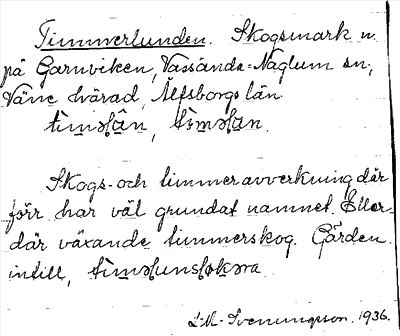 Timmerlunden. Skogsmark n.
på Garnviken, Vassända-Naglum sn,
Väne härad, Älfsborgs län
Skogs- och timmeravverkning där
förr har väl grundat namnet. Eller
där växande timmerskog. Gården
intill,
1936.